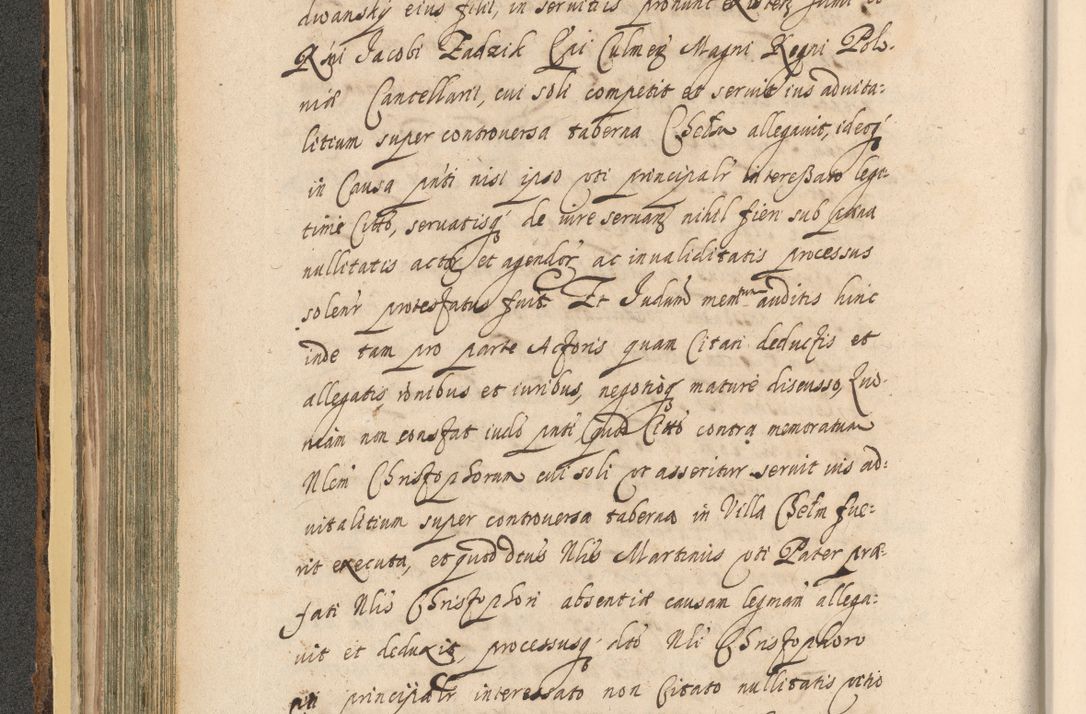 dwansky eius filii, in servitiis pronunc existen
Rndi Jacobi Zadzik Epi Culmen Magni Regni Polo-
niæ Cancellarii, cui soli competit et servit ius advita:
litium super controversa taberna Chełm allegavit, ideoq
in Causa pnti nisi ipso uti principalr interessato legi
time Citto, servatisq de iure servan nihil fieri sub pæna
nullitatis actor et agendor ac invaliditatis processus
solenr protestatus fuit. Et Judum memtum auditis hinc
inde tam pro parte Actoris quam Citati deductis et
allegatis ronibus et iuribus, negotioq mature discusso, Quo-
niam non constat iudo pnti Quod Citto contra memoratum
Nlem Christophorum cui soli ut asseritur servit ius ad:
vitalitium super controversa taberna in Villa Chełm fue:
rit executa, et quod dtus Nlis Martinus uti Pater præ:
fati Nlis Christophori absentiæ causam legmam allega:
vit et deduxit, processusq dto Nli Christophoro
uti principalr interessato non Citato nullitatis vitio